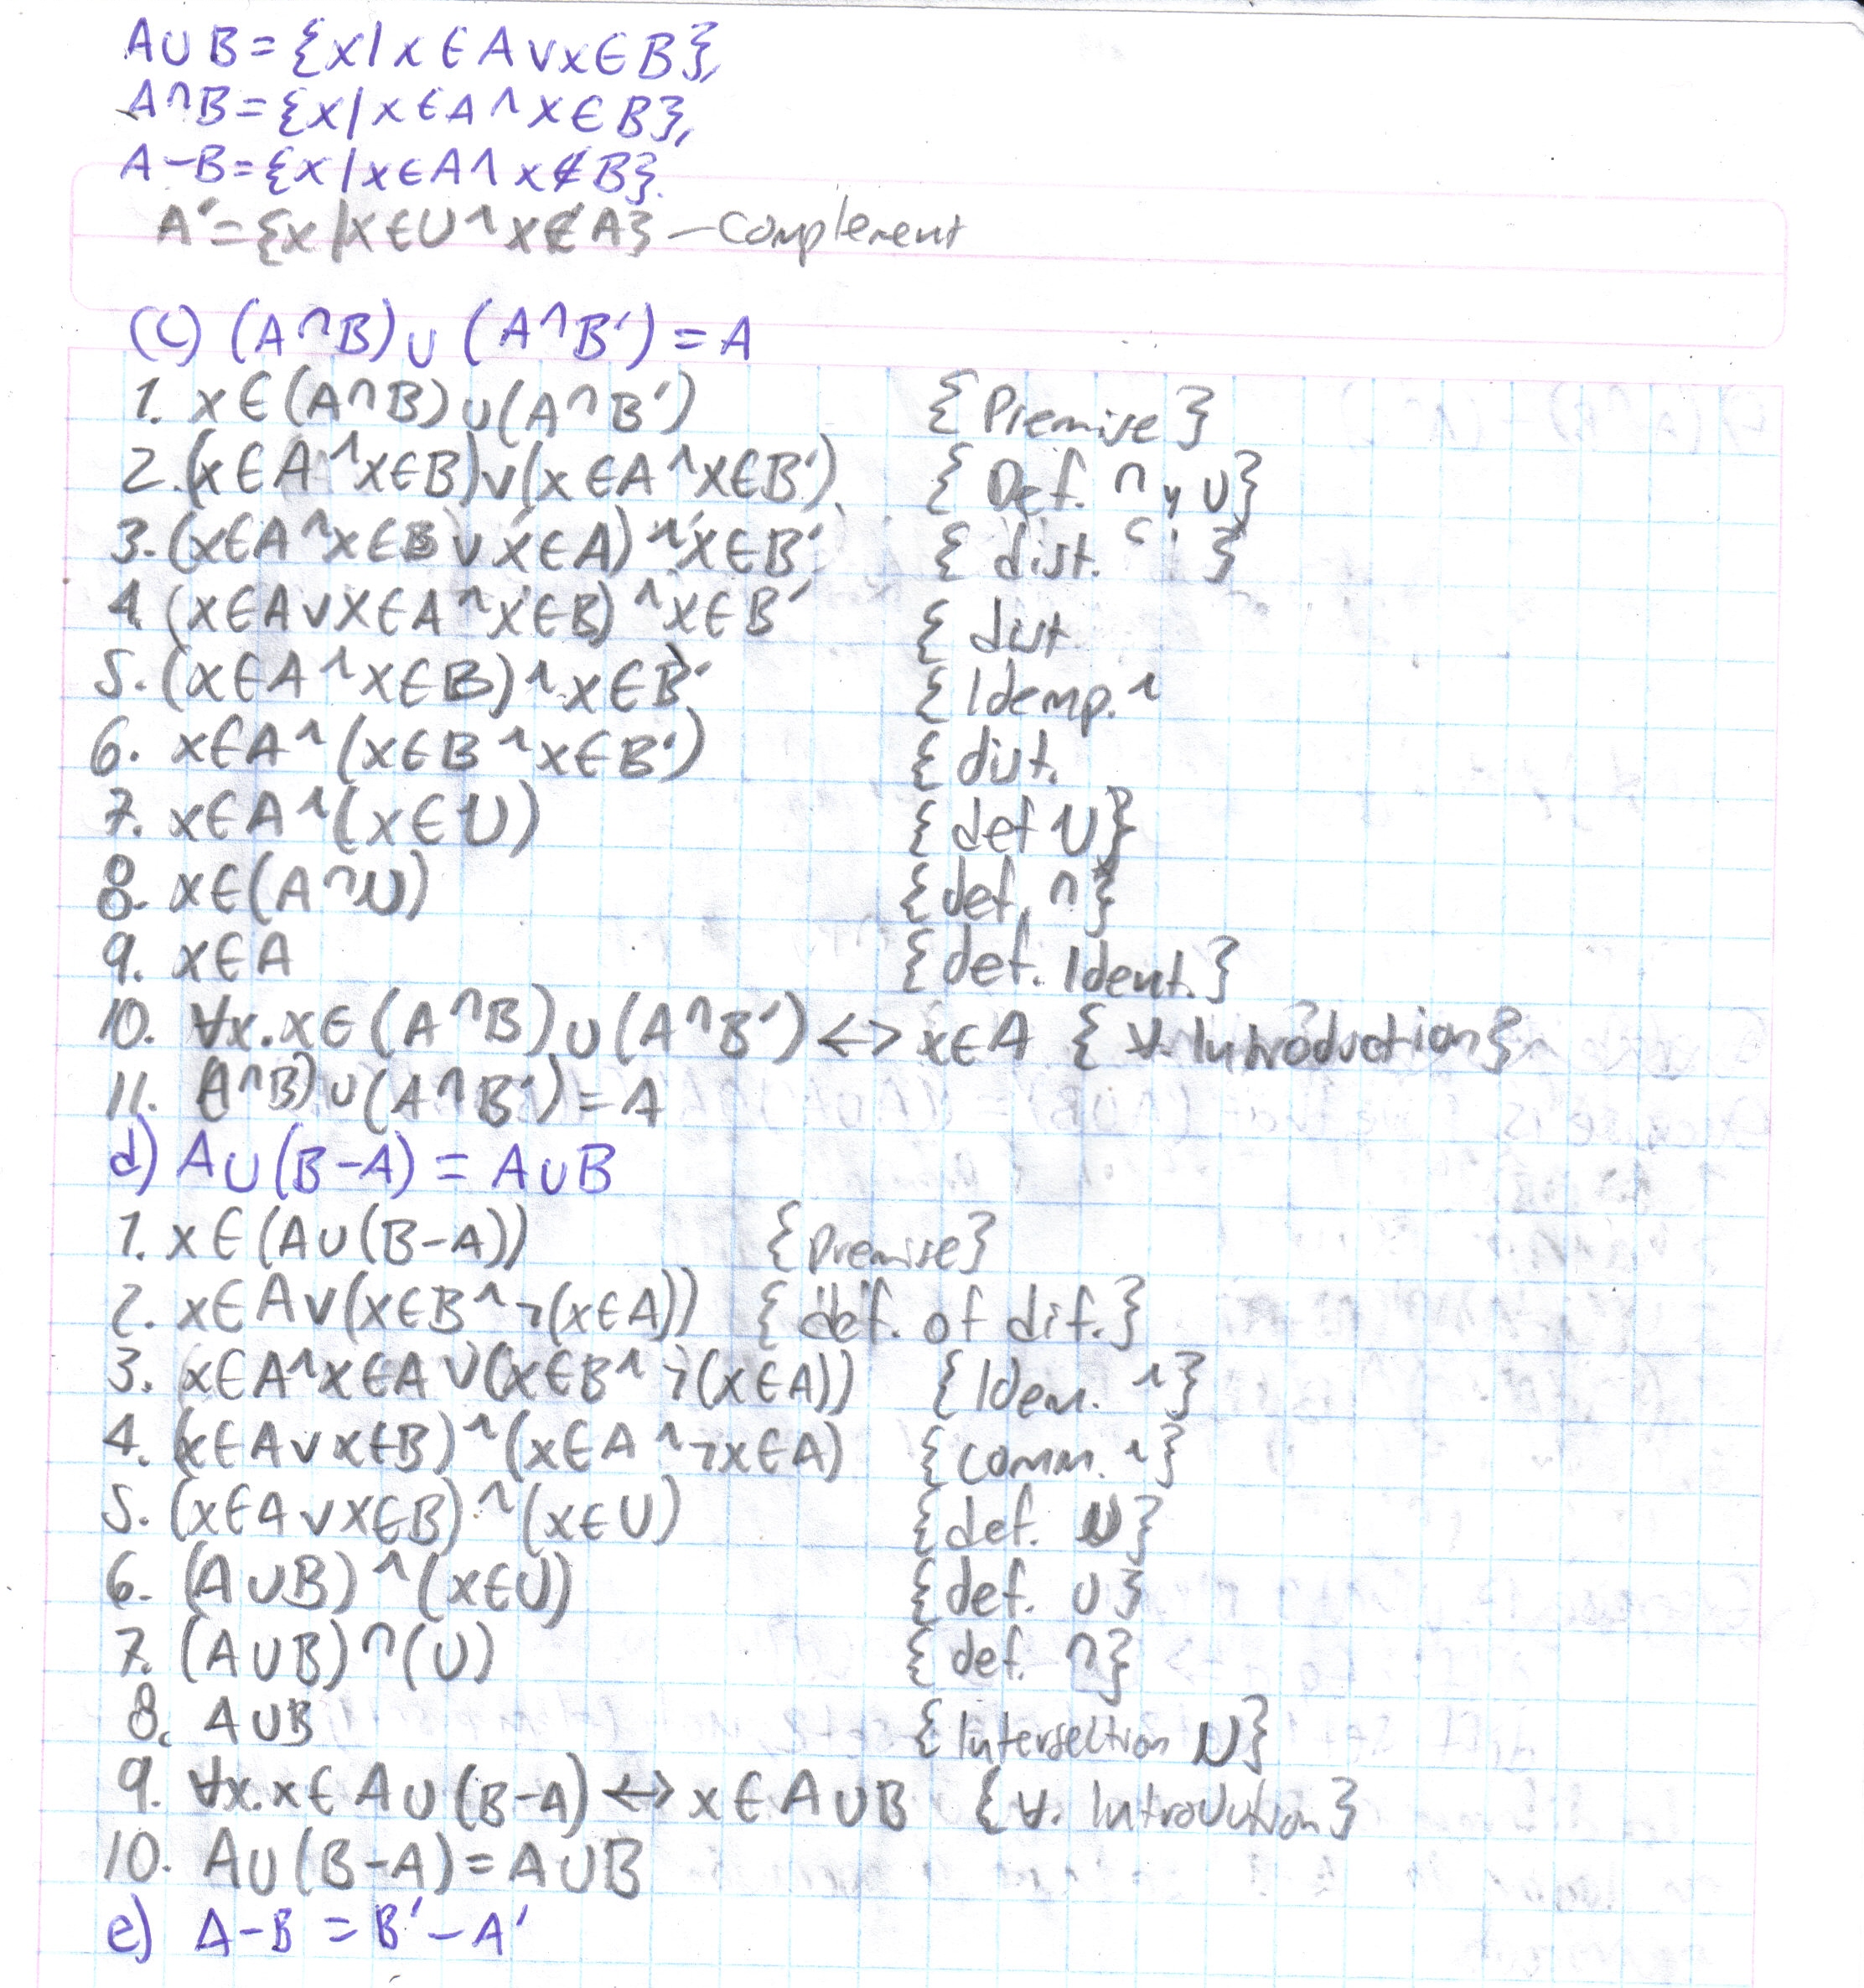 A∪B={x/x∈A∨x∈B},
A∩B={x/x∈A∧x∈B},
A-B={x/x∈A∧x∉B}.
A'={x/x∈U∧x∉A} - Complement
(c) (A∩B)∪(A∩B')=A
1. x∈(A∩B)∪(A∩B') {Premise}
2. (x∈A∧x∈B)∨(x∈A∧x∈B') {Def. ∩ y ∪}
3. (x∈A∧x∈B∨x∈A)∧x∈B' {dist. }
4. (x∈A∨x∈A∧x∈B)∧x∈B' {dist.
5. (x∈A∧x∈B)∧x∈B' {Idemp. ∧
6. x∈A∧(x∈B∧x∈B') {dist.
7. x∈A∧(x∈U) {def U}
8. x∈(A∩U) {def. ∩}
9. x∈A {def. Ident.}
10. ∀x.x∈(A∩B)∪(A∩B')<->x∈A {∀. Introduction}
11. (A∩B)∪(A∩B')=A
d) A∪(B-A)=A∪B
1. x∈(A∪(B-A)) {Premise}
2. x∈A∨(x∈B∧¬(x∈A)) {def. of dif.}
3. x∈A∧x∈A∨(x∈B∧¬(x∈A)) {Idem. ∧}
4. (x∈A∨x∈B)∧(x∈A∧¬x∈A) {comm. ∧}
5. (x∈A∨x∈B)∧(x∈U) {def. U}
6. (A∪B)∧(x∈U) {def. ∪}
7. (A∪B)∩(U) {def. ∩}
8. A∪B {Intersection U}
9. ∀x.x∈A∪(B-A)<->x∈A∪B {∀. Introdution}
10. A∪(B-A)=A∪B
e) A-B=B'-A'